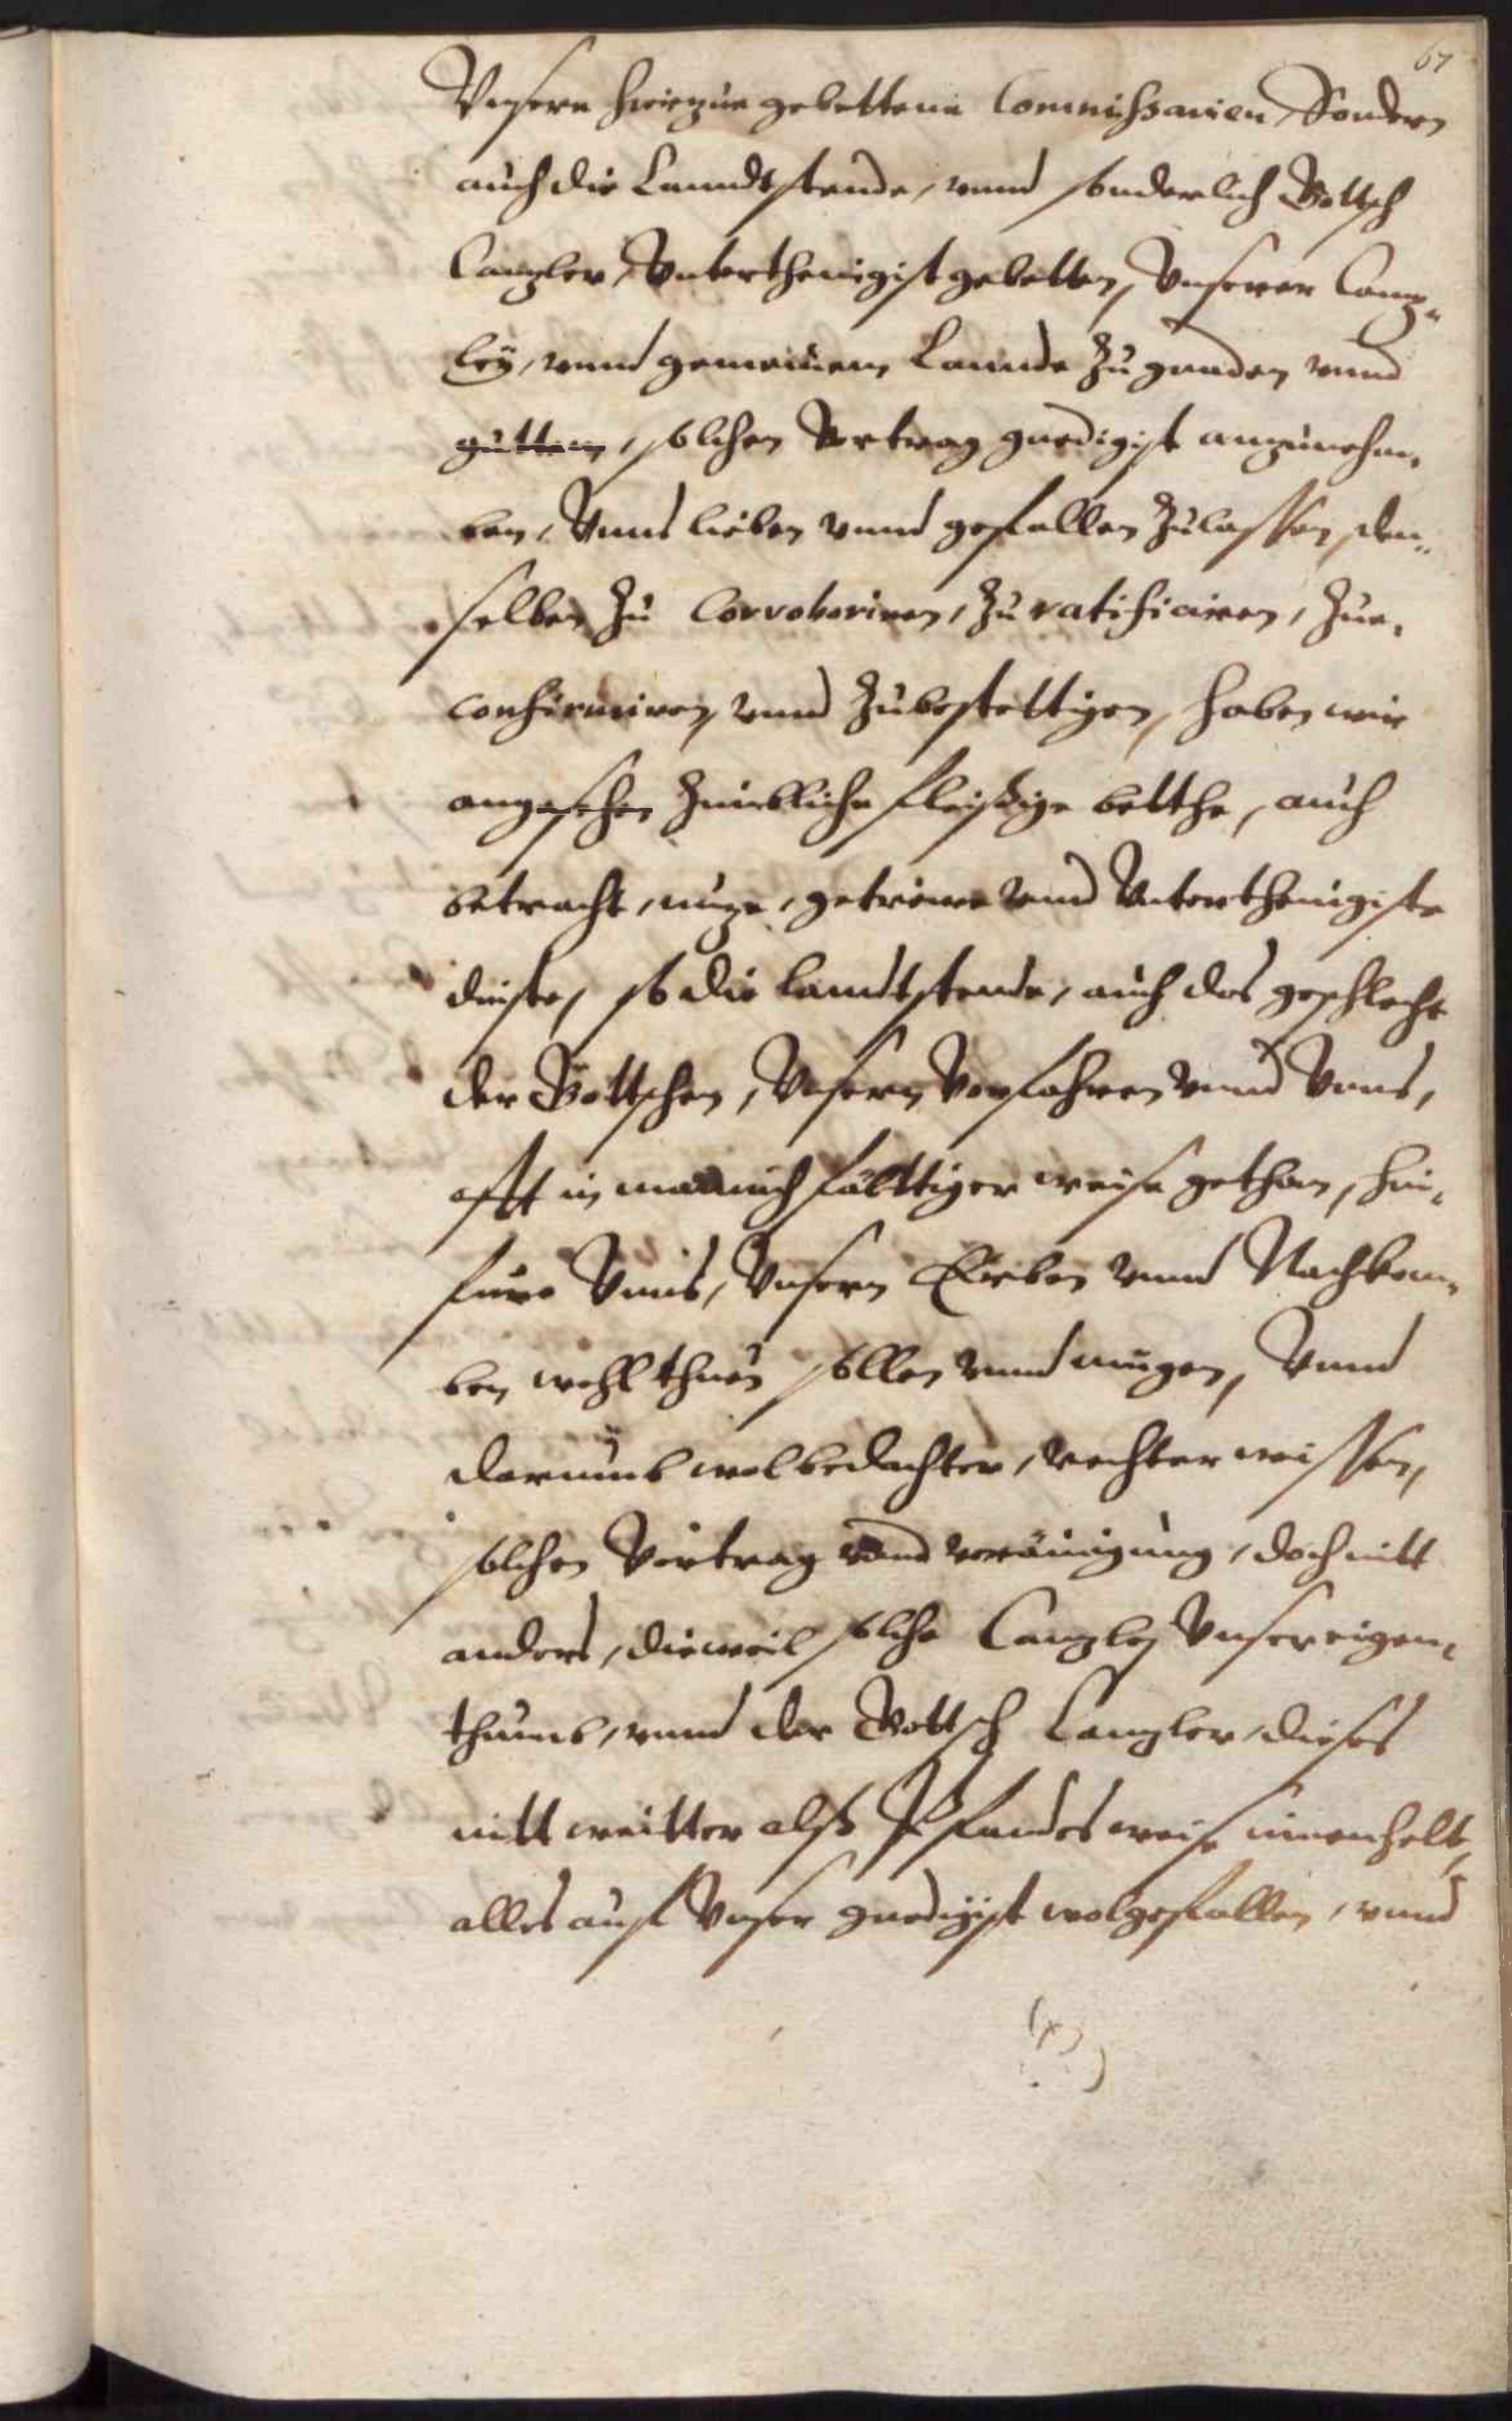 67
Vnsern hierzue gebettene Commissarien, Sondern
auch die Lanndtstende, vnnd sonderlich Bottsch
Canzler, Vnterthenigist gebetten, Vnserer Canz„
ley, vnnd gemeinem Lannde zu gnaden vnnd
gutten, solchen Vertrag gnedigist anzunehm„
ben, Vnns lieben vnnd gefallen zulassen, den„
selben zu Corroboriren, zu ratificiren, zue„
confirmiren, vnnd zubestettigen, haben wir
angesehen zimbliche fleissige bitthe, auch
betracht, nuze, getreue vnnd Vnterthenigiste
dinste, so die Landtstende, auch das geschlecht
der Bottschen, Vnsern Vorfahren vnnd Vnns,
offt in mannichfälttiger weise gethan, hin„
furo Vnns, Vnsern Erben vnnd Nachkom„
ben, wohl thuen sollen vnnd mugen, Vnnd
darumb wolbedachter, rechter wissen,
solchen Vertrag vnnd veräinigung, doch nitt
anders, dieweil solche Canzley Vnser eigen„
thumb, vnnd der Bottsch Canzler, dieses
nitt weitter alß Pfandes weise innenhelt,
alles auf Vnser gnedigist wolgefallen, vnnd